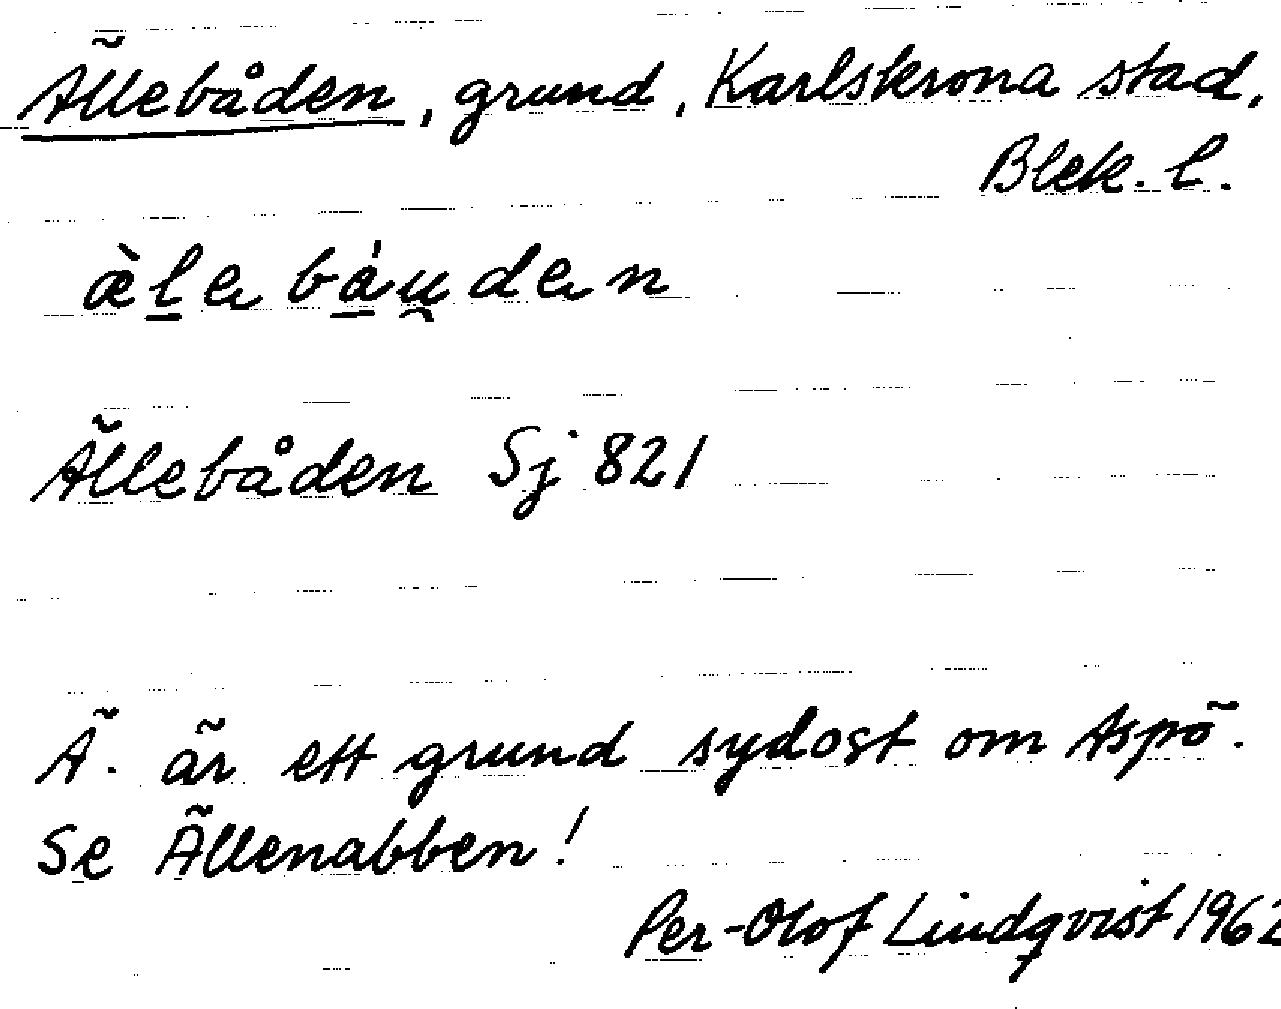 Ällebåden, grund, Karlskrona stad,
Blek. l.
æ̀l̲e bá̲u̯den
Ällebåden Sj 821
Ä. är ett grund sydost om Aspö.
Se Ällenabben!
Per-Olof Lindqvist 1962